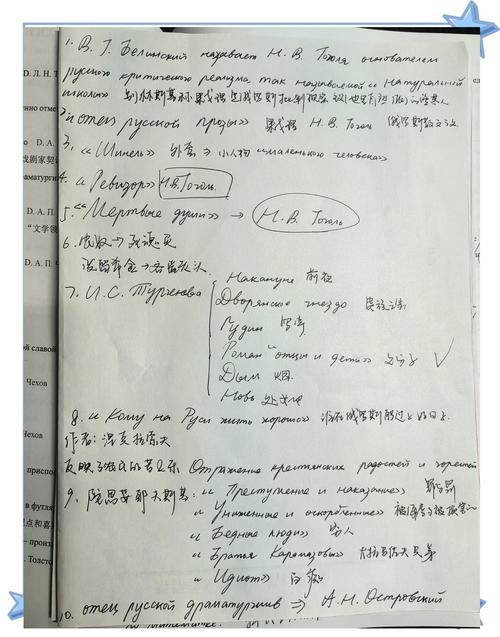 1. В. Г. Белинский называет Н. В. Гоголя основателем
русского критического реализма так называемой «натуральной
школы» 别林斯基称果戈里为俄罗斯批判现实
2. «отец русской прозы» 果戈里 Н. В. Гоголь 俄罗斯散文之父
3. «Шинель» 外套 → 小人物 «маленького человека»
4. «Ревизор» Н.В. Гоголь.
5. «Мертвые души» → Н. В. Гоголь
6. 农奴 → 死魂灵
泼留希金 → 吝啬
7. И. С. Тургенева
Накануне 前夜
Дворянское гнездо 贵族之家
Рудин 罗亭
Роман "отцы и дети" 父与子 ✓
Дым 烟.
Новь 处女地
8. «Кому на Руси жить хорошо» 谁在俄罗斯能过上好日子.
作者: 涅克拉索夫
反映了农民的苦与乐 Отражение крестьянских радостей и горестей
9. 陀思妥耶夫斯基: «Преступление и наказание» 罪与罚
«Униженные и оскорбленные» 被侮辱与被损害的
«Бедные люди» 穷人
«Братья Карамазовы» 卡拉马佐夫兄弟
«Идиот» 白痴
10. отец русской драматургии ⇒ А. Н. Островский
D. Л. Н. Т
D. А. П.
"文学领
D. А. П. Ч
й славой
Чехов
Чехов
приспо
в футля
– произ
. Толсто